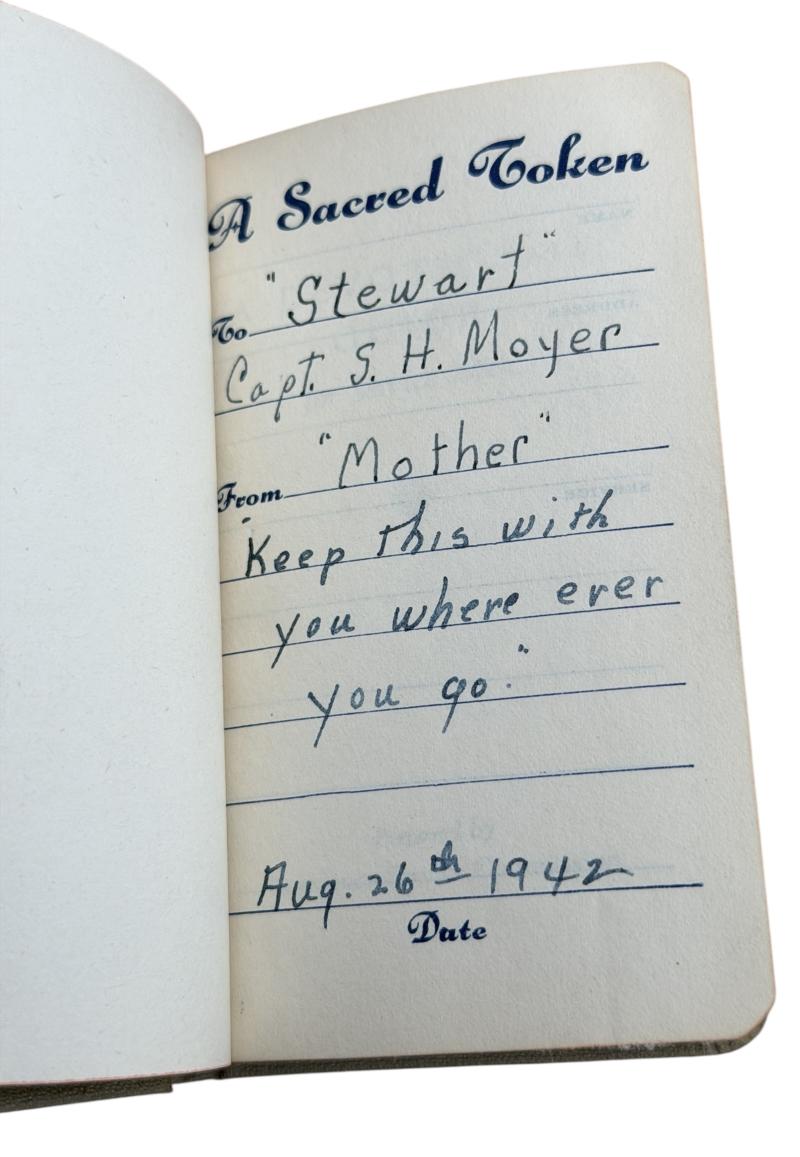 A Sacred Token
To "Stewart"
Capt. S. H. Moyer
From "Mother"
Keep this with
you where ever
you go."
Aug. 26th 1942
Date